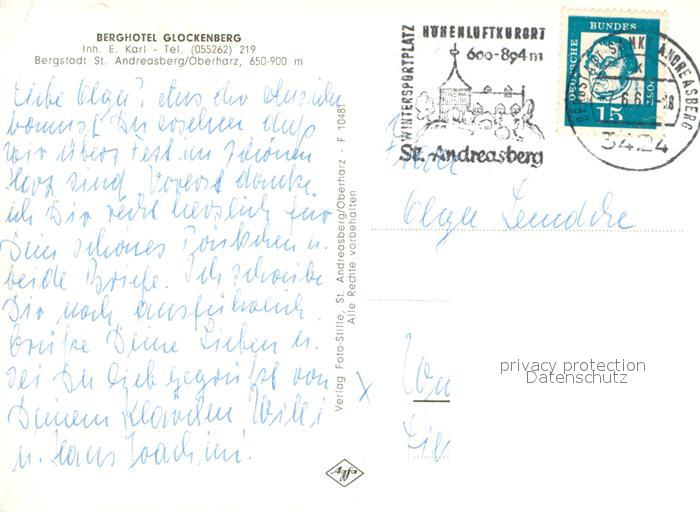 BERGHOTEL GLOCKENBERG
Inh. E. Karl - Tel. (055262) 219
Bergstadt St. Andreasberg/Oberharz, 650-900 m
Liebe Olga! Aus der Ansicht
kannst Du ersehen, daß
wir übers Fest im schönen
Harz sind. Vorerst danke
ich Dir recht herzlich für
Dein schönes Päckchen u.
beide Briefe. Ich schreibe
Dir noch ausführlich.
Grüße Deine Lieben u.
sei Du lieb gegrüßt von
Deinem Klärchen, Willi
u. Hans Joachim.
Verlag Foto-Stille, St. Andreasberg/Oberharz · F 10481
Alle Rechte vorbehalten
Agfa
WINTERSPORTPLATZ
HÖHENLUFTKURORT
600-894m
St. Andreasberg
DEUTSCHE BUNDESPOST
15
BERGSTADT SANKT ANDREASBERG
3424
Olga
privacy protection
Datenschutz